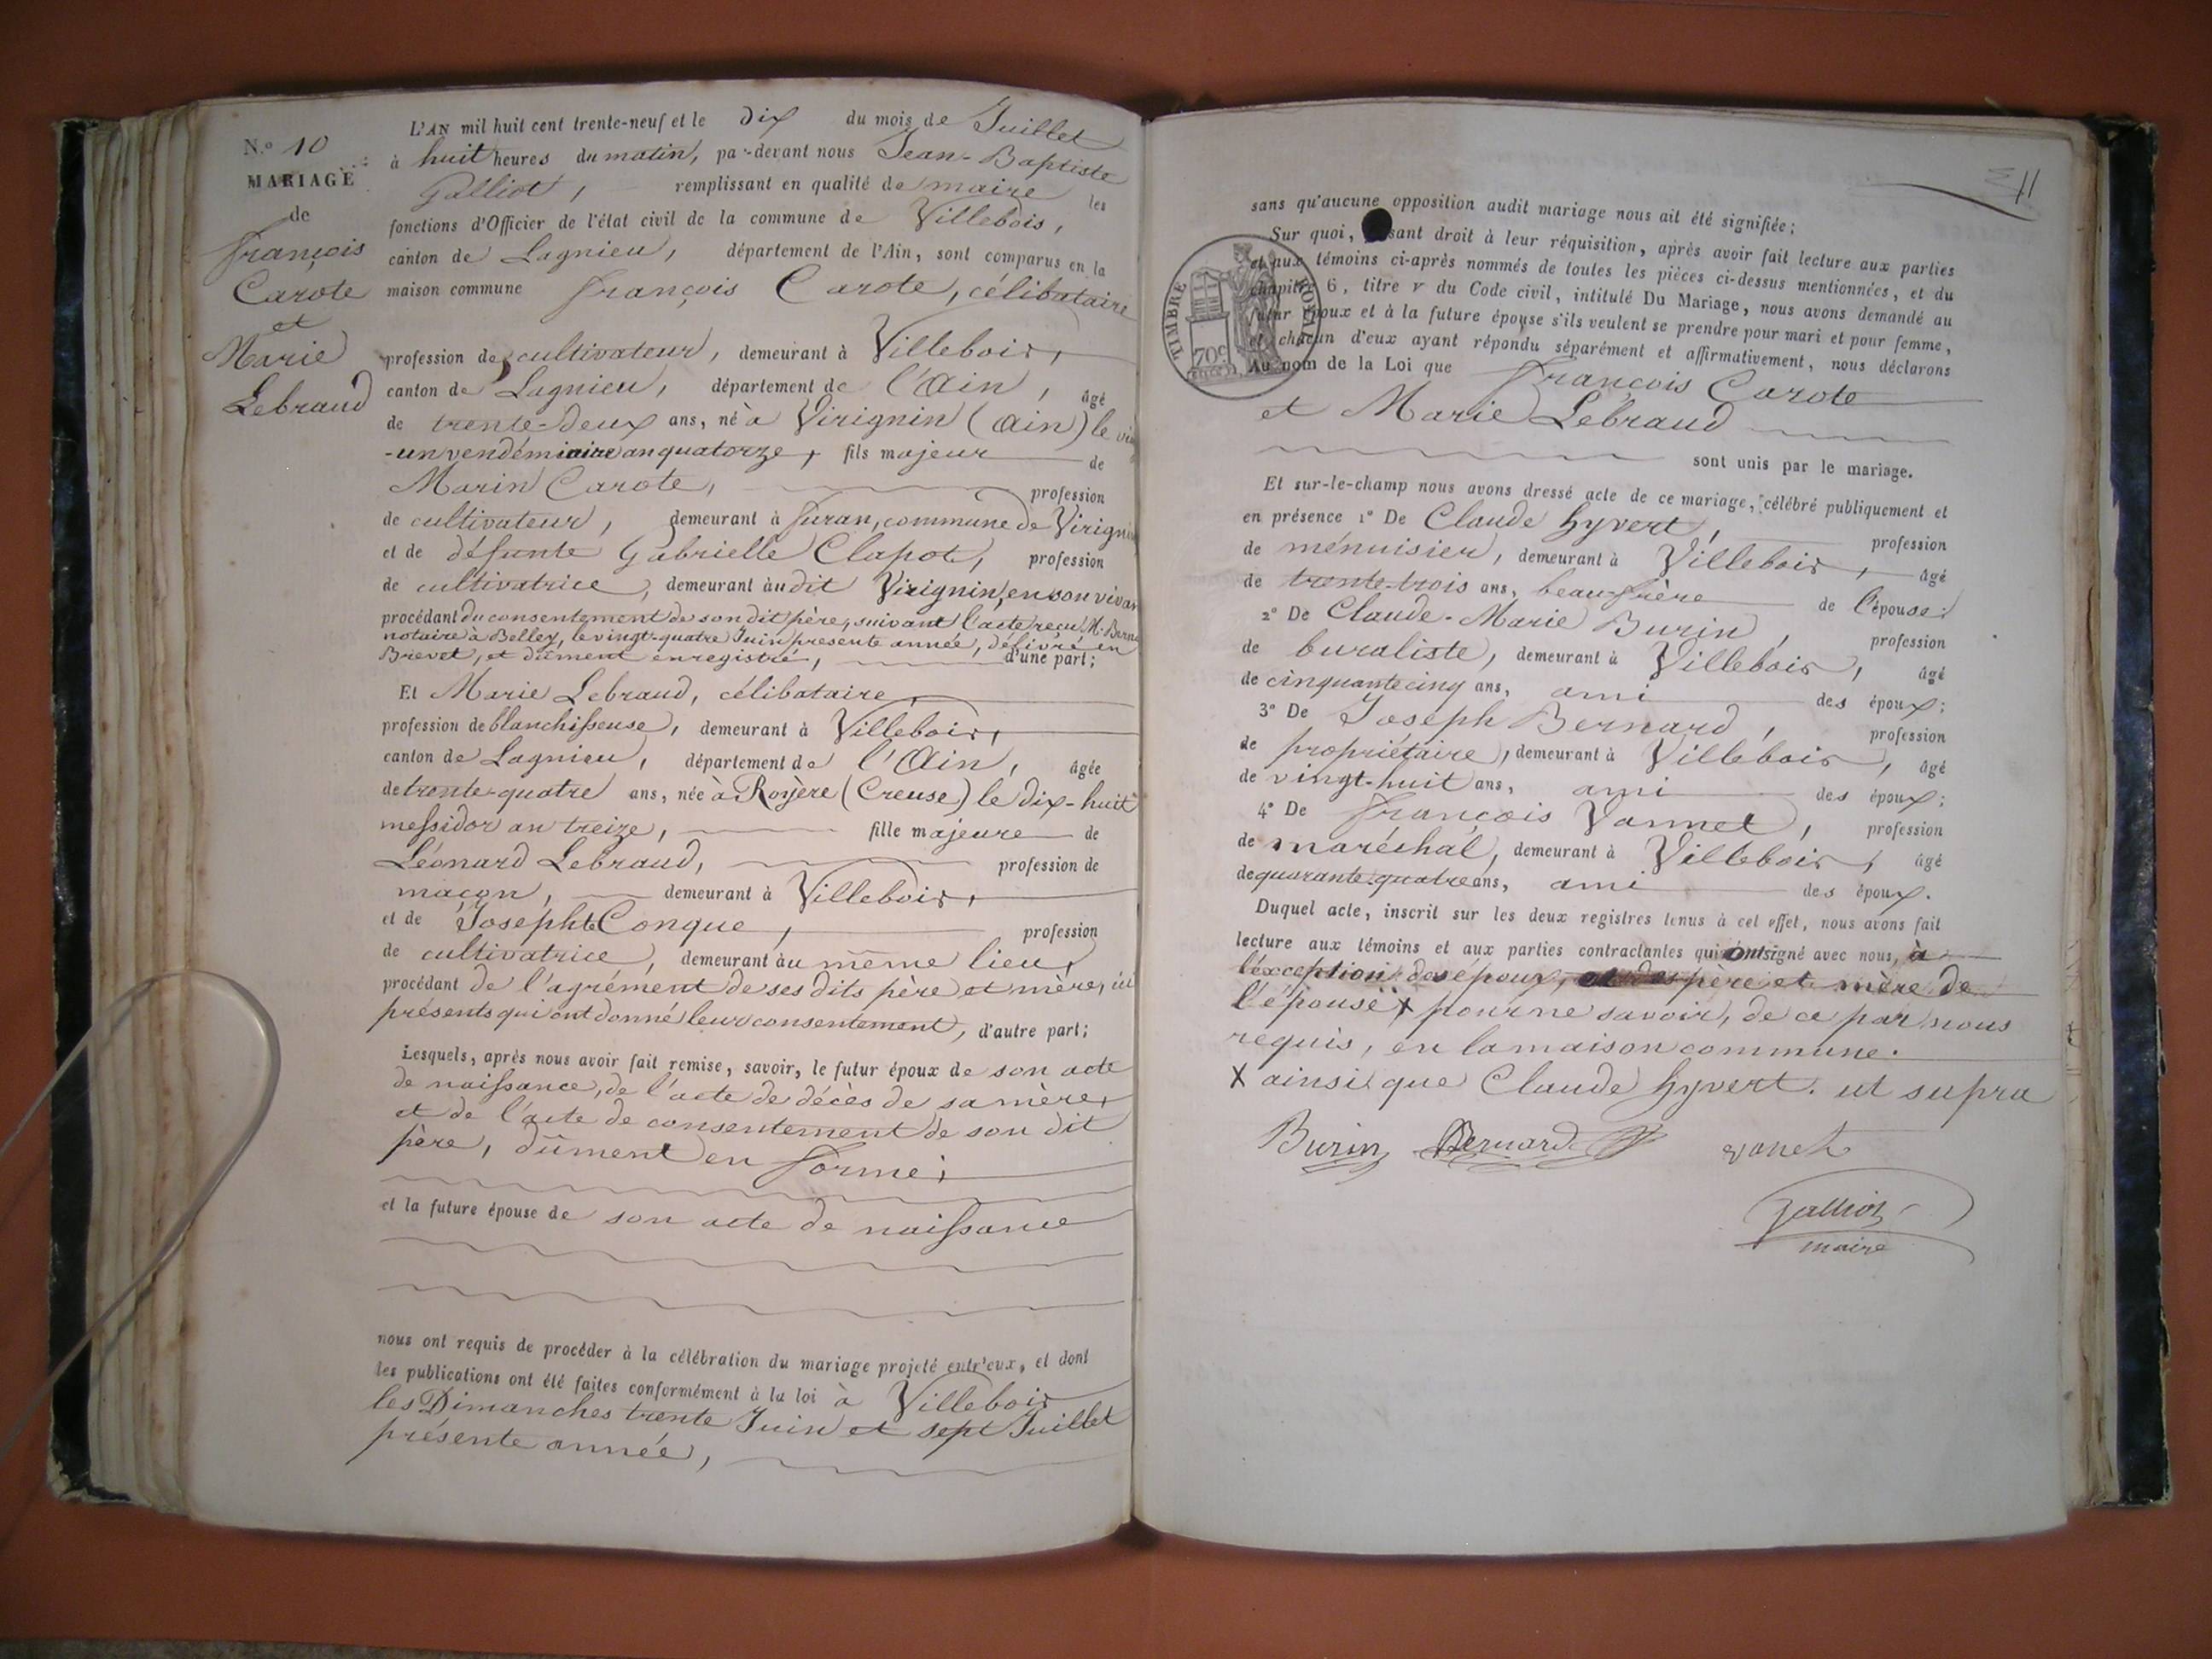 N.o 10
MARIAGE
de
François
Carote
et
Marie
Lebraud
L'AN mil huit cent trente-neuf et le dix du mois de Juillet
à huit heures du matin, par-devant nous Jean-Baptiste
Galliot, remplissant en qualité de maire les
fonctions d'Officier de l'état civil de la commune de Villebois,
canton de Lagnieu, département de l'Ain, sont comparus en la
maison commune François Carote, célibataire
profession de cultivateur, demeurant à Villebois,
canton de Lagnieu, département de l'Ain, âgé
de trente-deux ans, né à Virignin (Ain) le
-un vendémiaire an quatorze, fils majeur de
Marin Carote, profession
de cultivateur, demeurant à Juran, commune de Virignin
et de défunte Gabrielle Clapot, profession
de cultivatrice, demeurant audit Virignin, en son vivant
procédant du consentement de son dit père, suivant l'acte reçu M.e
notaire à Belley, le vingt-quatre Juin présente année, délivré en
Brevet, et dûment enregistré, d'une part;
Et Marie Lebraud, célibataire,
profession de blanchisseuse, demeurant à Villebois,
canton de Lagnieu, département de l'Ain, âgée
de trente-quatre ans, née à Royère (Creuse) le dix-huit
messidor an treize, fille majeure de
Léonard Lebraud, profession de
maçon, demeurant à Villebois,
et de Josephte Conque, profession
de cultivatrice, demeurant au même lieu,
procédant de l'agrément de ses dits père et mère, ici
présents qui ont donné leur consentement, d'autre part;
Lesquels, après nous avoir fait remise, savoir, le futur époux de son acte
de naissance, de l'acte de décès de sa mère,
et de l'acte de consentement de son dit
père, dûment en forme;
et la future épouse de son acte de naissance
nous ont requis de procéder à la célébration du mariage projeté entr'eux, et dont
les publications ont été faites conformément à la loi à Villebois
les Dimanches trente Juin et sept Juillet
présente année,
11
sans qu'aucune opposition audit mariage nous ait été signifiée;
Sur quoi, sant droit à leur réquisition, après avoir fait lecture aux parties
et aux témoins ci-après nommés de toutes les pièces ci-dessus mentionnées, et du
chapitre 6, titre v du Code civil, intitulé Du Mariage, nous avons demandé au
futur époux et à la future épouse s'ils veulent se prendre pour mari et pour femme,
et chacun d'eux ayant répondu séparément et affirmativement, nous déclarons
Au nom de la Loi que François Carote
et Marie Lebraud
sont unis par le mariage.
TIMBRE ROYAL
70c
Et sur-le-champ nous avons dressé acte de ce mariage, célébré publiquement et
en présence 1° De Claude hyvert, profession
de ménuisier, demeurant à Villebois, âgé
de trente-trois ans, beau-frère de l'épouse;
2° De Claude-Marie Burin, profession
de buraliste, demeurant à Villebois, âgé
de cinquante cinq ans, ami des époux;
3° De Joseph Bernard, profession
de propriétaire, demeurant à Villebois, âgé
de vingt-huit ans, ami des époux;
4° De François Vannet, profession
de maréchal, demeurant à Villebois, âgé
de quarante-quatre ans, ami des époux.
Duquel acte, inscrit sur les deux registres tenus à cet effet, nous avons fait
lecture aux témoins et aux parties contractantes qui ont signé avec nous, à
l'exception des époux, et des père et mère de
l'épouse X pour ne savoir, de ce par nous
requis, en la maison commune.
X ainsi que Claude hyvert. ut supra
Burin Bernard vanet
Galliot
maire